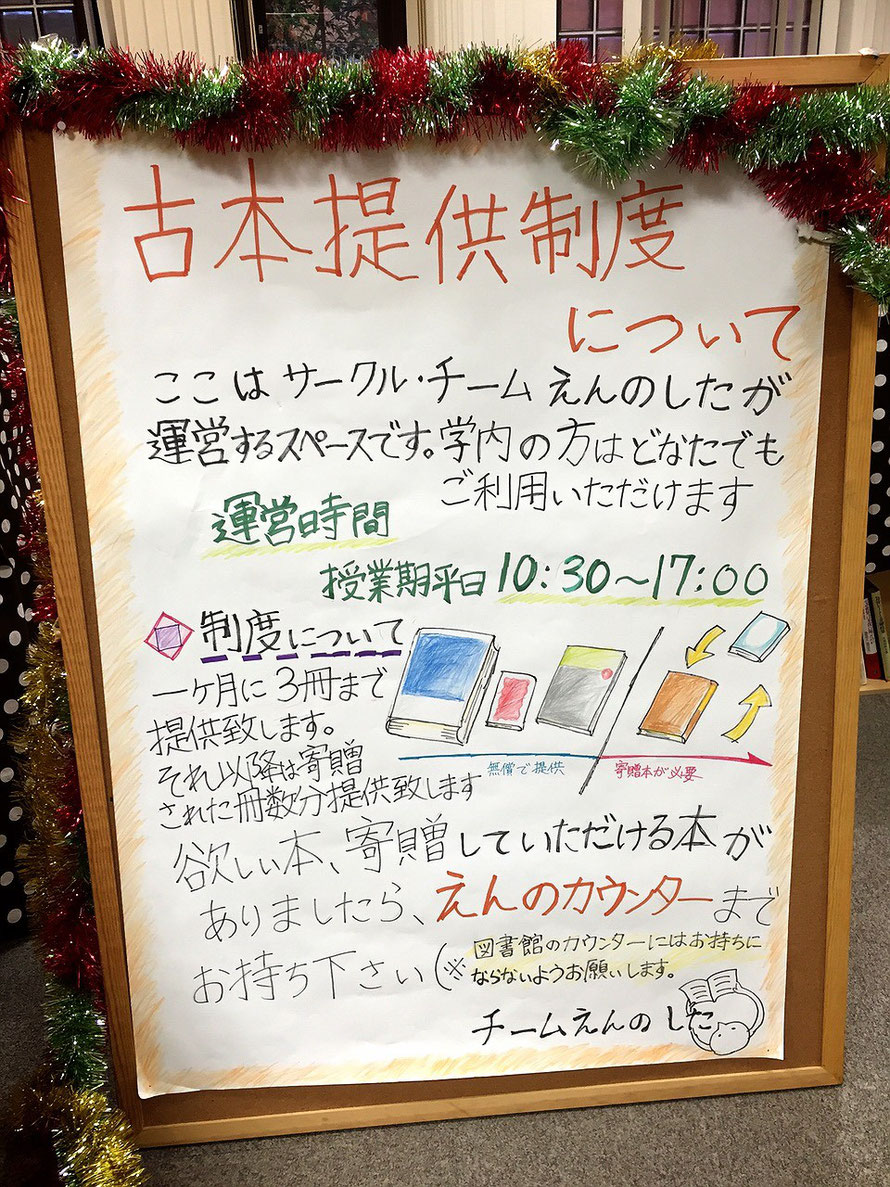 古本提供制度
について
ここはサークル・チームえんのしたが
運営するスペースです。学内の方はどなたでも
ご利用いただけます
運営時間
授業期平日 10:30～17:00
制度について
一ケ月に3冊まで
提供致します。
それ以降は寄贈
された冊数分提供致します
無償で提供
寄贈本が必要
欲しい本、寄贈していただける本が
ありましたら、えんのカウンターまで
お持ち下さい(※図書館のカウンターにはお持ちに
ならないようお願いします。
チームえんのした